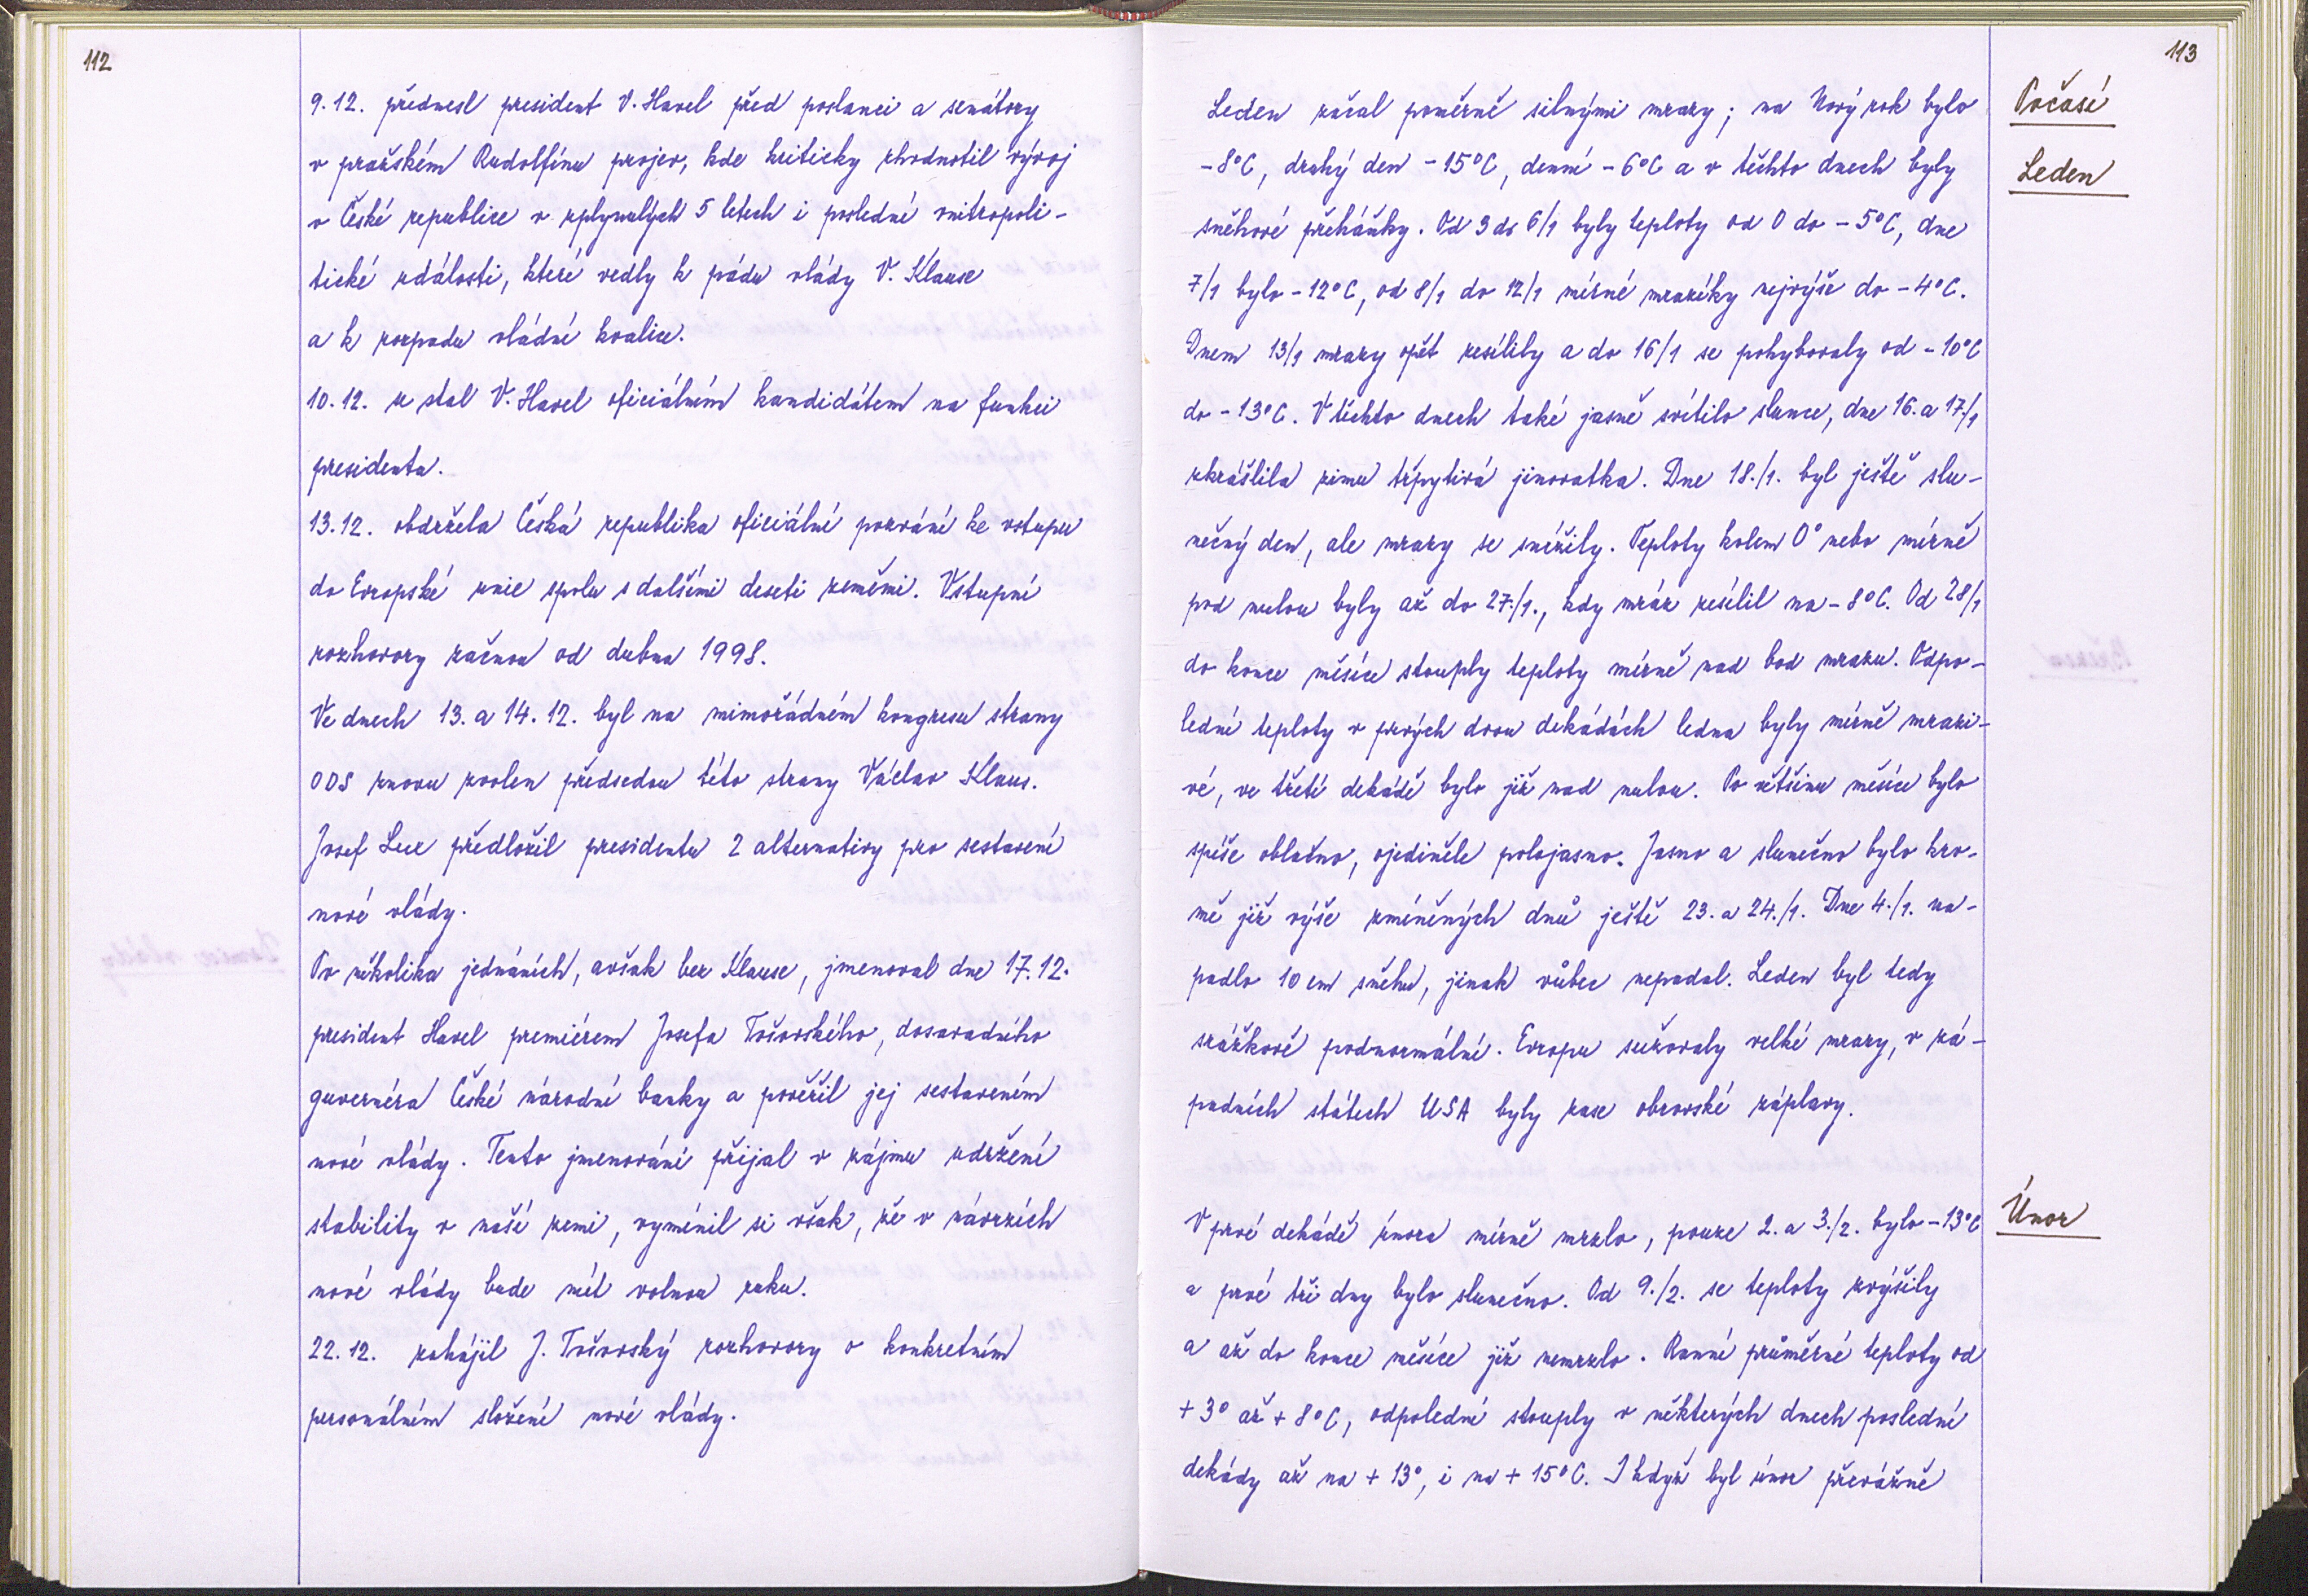 112
9.12. přednesl president V. Havel před poslanci a senátory
v pražském Rudolfínu projev, kde kriticky zhodnotil vývoj
v České republice v uplynulých 5 letech i poslední vnitropoli-
tické události, které vedly k pádu vlády V. Klause
a k rozpadu vládní koalice.
10.12. se stal V. Havel oficiálním kandidátem na funkci
presidenta.
13.12. obdržela Česká republika oficiální pozvání ke vstupu
do Evropské unie spolu s dalšími deseti zeměmi. Vstupní
rozhovory začnou od dubna 1998.
Ve dnech 13. a 14.12. byl na mimořádném kongresu strany
ODS znovu zvolen předsedou této strany Václav Klaus.
Josef Lux předložil presidentu 2 alternativy pro sestavení
nové vlády.
Po několika jednáních, avšak bez Klause, jmenoval dne 17.12.
president Havel premiérem Josefa Tošovského, dosavadního
guvernéra České národní banky a pověřil jej sestavením
nové vlády. Tento jmenování přijal v zájmu udržení
stability v naší zemi, vymínil si však, že v návrzích
nové vlády bude mít volnou ruku.
22.12. zahájil J. Tošovský rozhovory o konkretním
personálním složení nové vlády.
113
Počasí
Leden
Leden začal poměrně silnými mrazy; na Nový rok bylo
-8°C, druhý den -15°C, denní -6°C a v těchto dnech byly
sněhové přeháňky. Od 3 do 6/1 byly teploty od 0 do -5°C, dne
7/1 bylo -12°C, od 8/1 do 12/1 mírné mrazíky nejvýše do -4°C.
Dnem 13/1 mrazy opět zesílily a do 16/1 se pohybovaly od -10°C
do -13°C. V těchto dnech také jasně svítilo slunce, dne 16. a 17./1
zkrášlila zimu třpytivá jinovatka. Dne 18./1. byl ještě slu-
nečný den, ale mrazy se snížily. Teploty kolem 0° nebo mírně
pod nulou byly až do 27./1., kdy mráz zesílil na -8°C. Od 28/1
do konce měsíce stouply teploty mírně nad bod mrazu. Odpo-
lední teploty v prvých dvou dekádách ledna byly mírně mrazi-
vé, ve třetí dekádě bylo již nad nulou. Po většinu měsíce bylo
spíše oblačno, ojediněle polojasno. Jasno a slunečno bylo kro-
mě již výše zmíněných dnů ještě 23. a 24./1. Dne 4./1. na-
padlo 10 cm sněhu, jinak vůbec nepadal. Leden byl tedy
srážkově podnormální. Evropu sužovaly velké mrazy, v zá-
padních státech USA byly zase obrovské záplavy.
Únor
V prvé dekádě února mírně mrzlo, pouze 2. a 3./2. bylo -13°C
a prvé tři dny bylo slunečno. Od 9./2. se teploty zvýšily
a až do konce měsíce již nemrzlo. Ranní průměrné teploty od
+3° až +8°C, odpolední stouply v některých dnech poslední
dekády až na +13°, i na +15°C. I když byl únor převážně